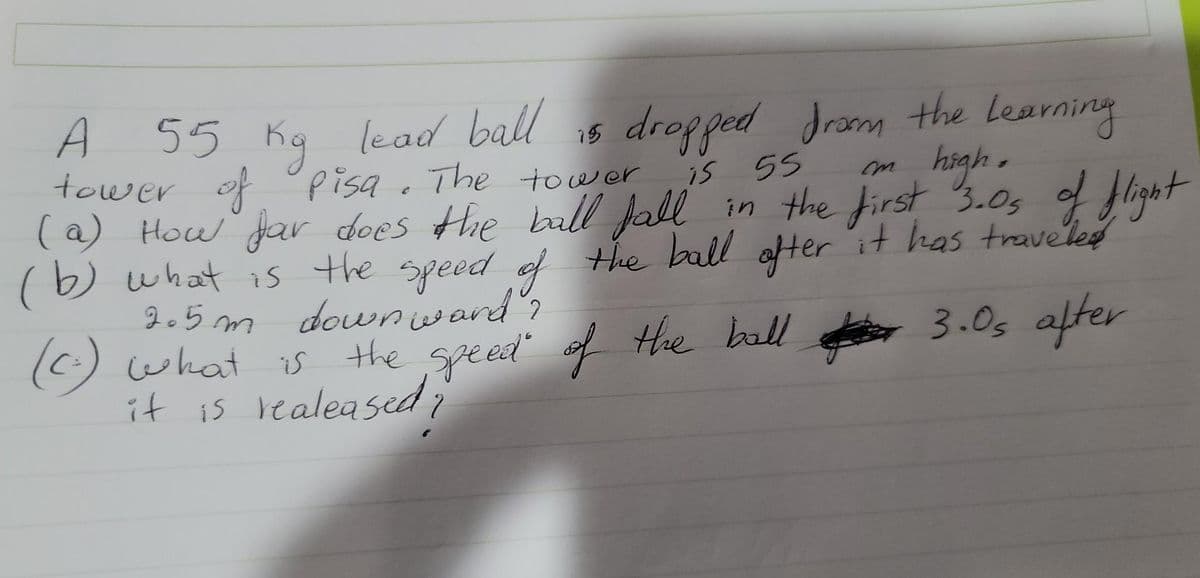 A 55 kg lead ball is dropped from the Learning
tower of pisa. The tower is 55 m high.
(a) How far does the ball fall in the first 3.0s of flight
(b) what is the speed of the ball after it has traveled
2.5 m downward?
(c) what is the speed of the ball 3.0s after
it is realeased?